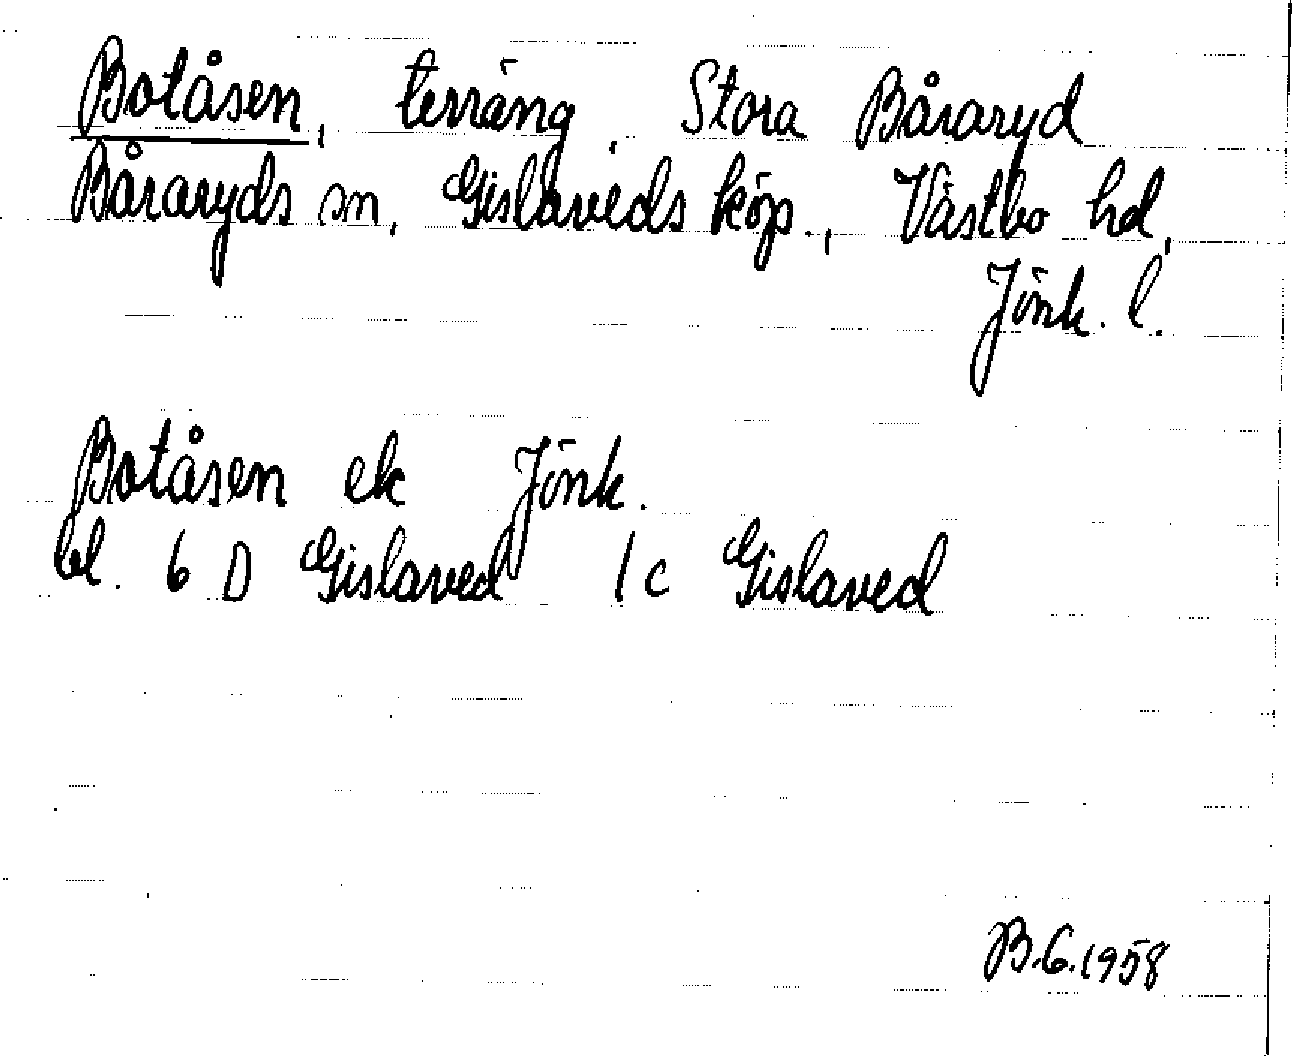 Botåsen, terräng, Stora Båraryd
Båraryds sn, Gislaveds köp., Västbo hd,
Jönk. l.
Botåsen ek Jönk.
bl. 6 D Gislaved 1 c Gislaved
B.G.1958